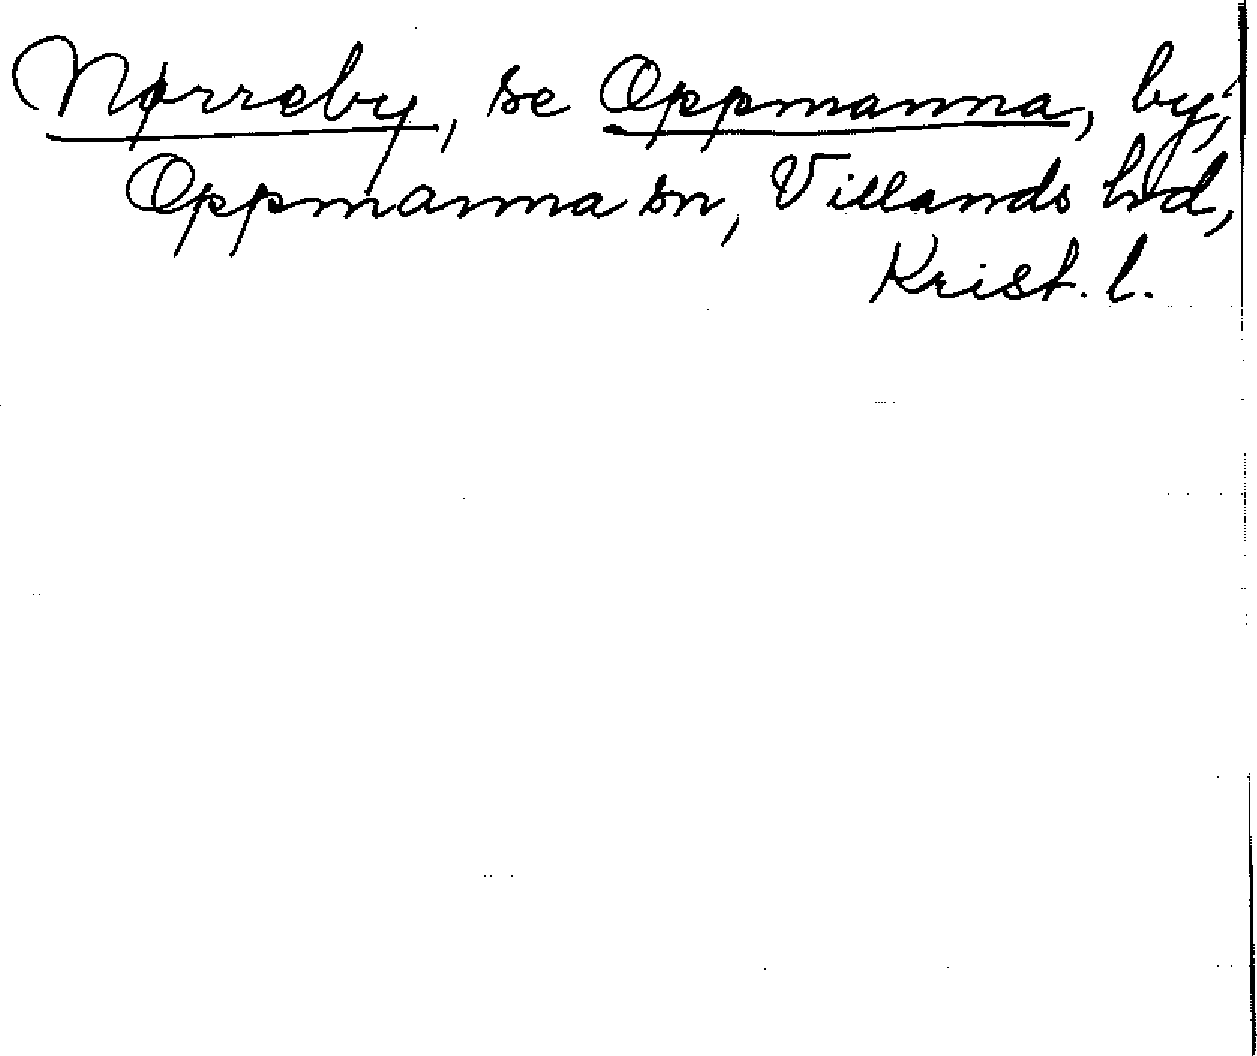 Nørreby, se Oppmanna, by,
Oppmanna sn, Villands hd,
Krist. l.